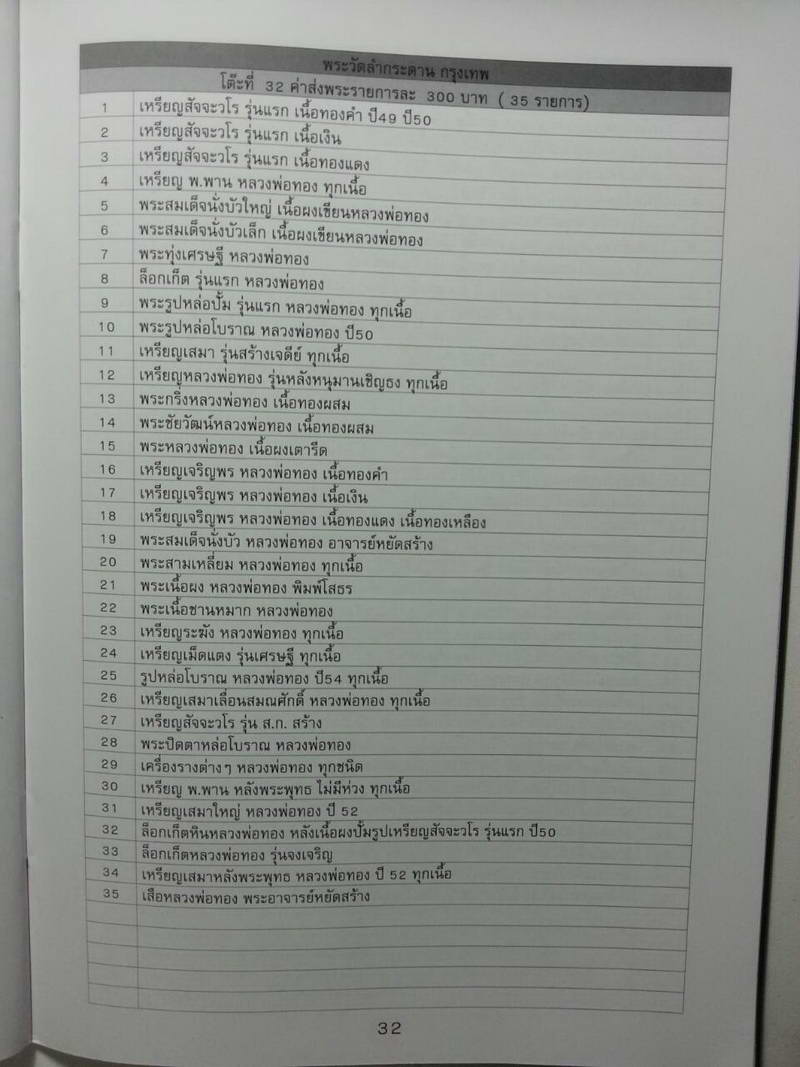 พระวัดลำกระดาน กรุงเทพ
โต๊ะที่ 32 ค่าส่งพระรายการละ 300 บาท ( 35 รายการ)
1 เหรียญสัจจะวโร รุ่นแรก เนื้อทองคำ ปี49 ปี50
2 เหรียญสัจจะวโร รุ่นแรก เนื้อเงิน
3 เหรียญสัจจะวโร รุ่นแรก เนื้อทองแดง
4 เหรียญ พ.พาน หลวงพ่อทอง ทุกเนื้อ
5 พระสมเด็จนั่งบัวใหญ่ เนื้อผงเขียนหลวงพ่อทอง
6 พระสมเด็จนั่งบัวเล็ก เนื้อผงเขียนหลวงพ่อทอง
7 พระทุ่งเศรษฐี หลวงพ่อทอง
8 ล็อกเก็ต รุ่นแรก หลวงพ่อทอง
9 พระรูปหล่อปั้ม รุ่นแรก หลวงพ่อทอง ทุกเนื้อ
10 พระรูปหล่อโบราณ หลวงพ่อทอง ปี50
11 เหรียญเสมา รุ่นสร้างเจดีย์ ทุกเนื้อ
12 เหรียญหลวงพ่อทอง รุ่นหลังหนุมานเชิญธง ทุกเนื้อ
13 พระกริ่งหลวงพ่อทอง เนื้อทองผสม
14 พระชัยวัฒน์หลวงพ่อทอง เนื้อทองผสม
15 พระหลวงพ่อทอง เนื้อผงเตารีด
16 เหรียญเจริญพร หลวงพ่อทอง เนื้อทองคำ
17 เหรียญเจริญพร หลวงพ่อทอง เนื้อเงิน
18 เหรียญเจริญพร หลวงพ่อทอง เนื้อทองแดง เนื้อทองเหลือง
19 พระสมเด็จนั่งบัว หลวงพ่อทอง อาจารย์หยัดสร้าง
20 พระสามเหลี่ยม หลวงพ่อทอง ทุกเนื้อ
21 พระเนื้อผง หลวงพ่อทอง พิมพ์โสธร
22 พระเนื้อชานหมาก หลวงพ่อทอง
23 เหรียญระฆัง หลวงพ่อทอง ทุกเนื้อ
24 เหรียญเม็ดแตง รุ่นเศรษฐี ทุกเนื้อ
25 รูปหล่อโบราณ หลวงพ่อทอง ปี54 ทุกเนื้อ
26 เหรียญเสมาเลื่อนสมณศักดิ์ หลวงพ่อทอง ทุกเนื้อ
27 เหรียญสัจจะวโร รุ่น ส.ก. สร้าง
28 พระปิดตาหล่อโบราณ หลวงพ่อทอง
29 เครื่องรางต่างๆ หลวงพ่อทอง ทุกชนิด
30 เหรียญ พ.พาน หลังพระพุทธ ไม่มีห่วง ทุกเนื้อ
31 เหรียญเสมาใหญ่ หลวงพ่อทอง ปี 52
32 ล็อกเก็ตหินหลวงพ่อทอง หลังเนื้อผงปั้มรูปเหรียญสัจจะวโร รุ่นแรก ปี50
33 ล็อกเก็ตหลวงพ่อทอง รุ่นจงเจริญ
34 เหรียญเสมาหลังพระพุทธ หลวงพ่อทอง ปี 52 ทุกเนื้อ
35 เสือหลวงพ่อทอง พระอาจารย์หยัดสร้าง
32